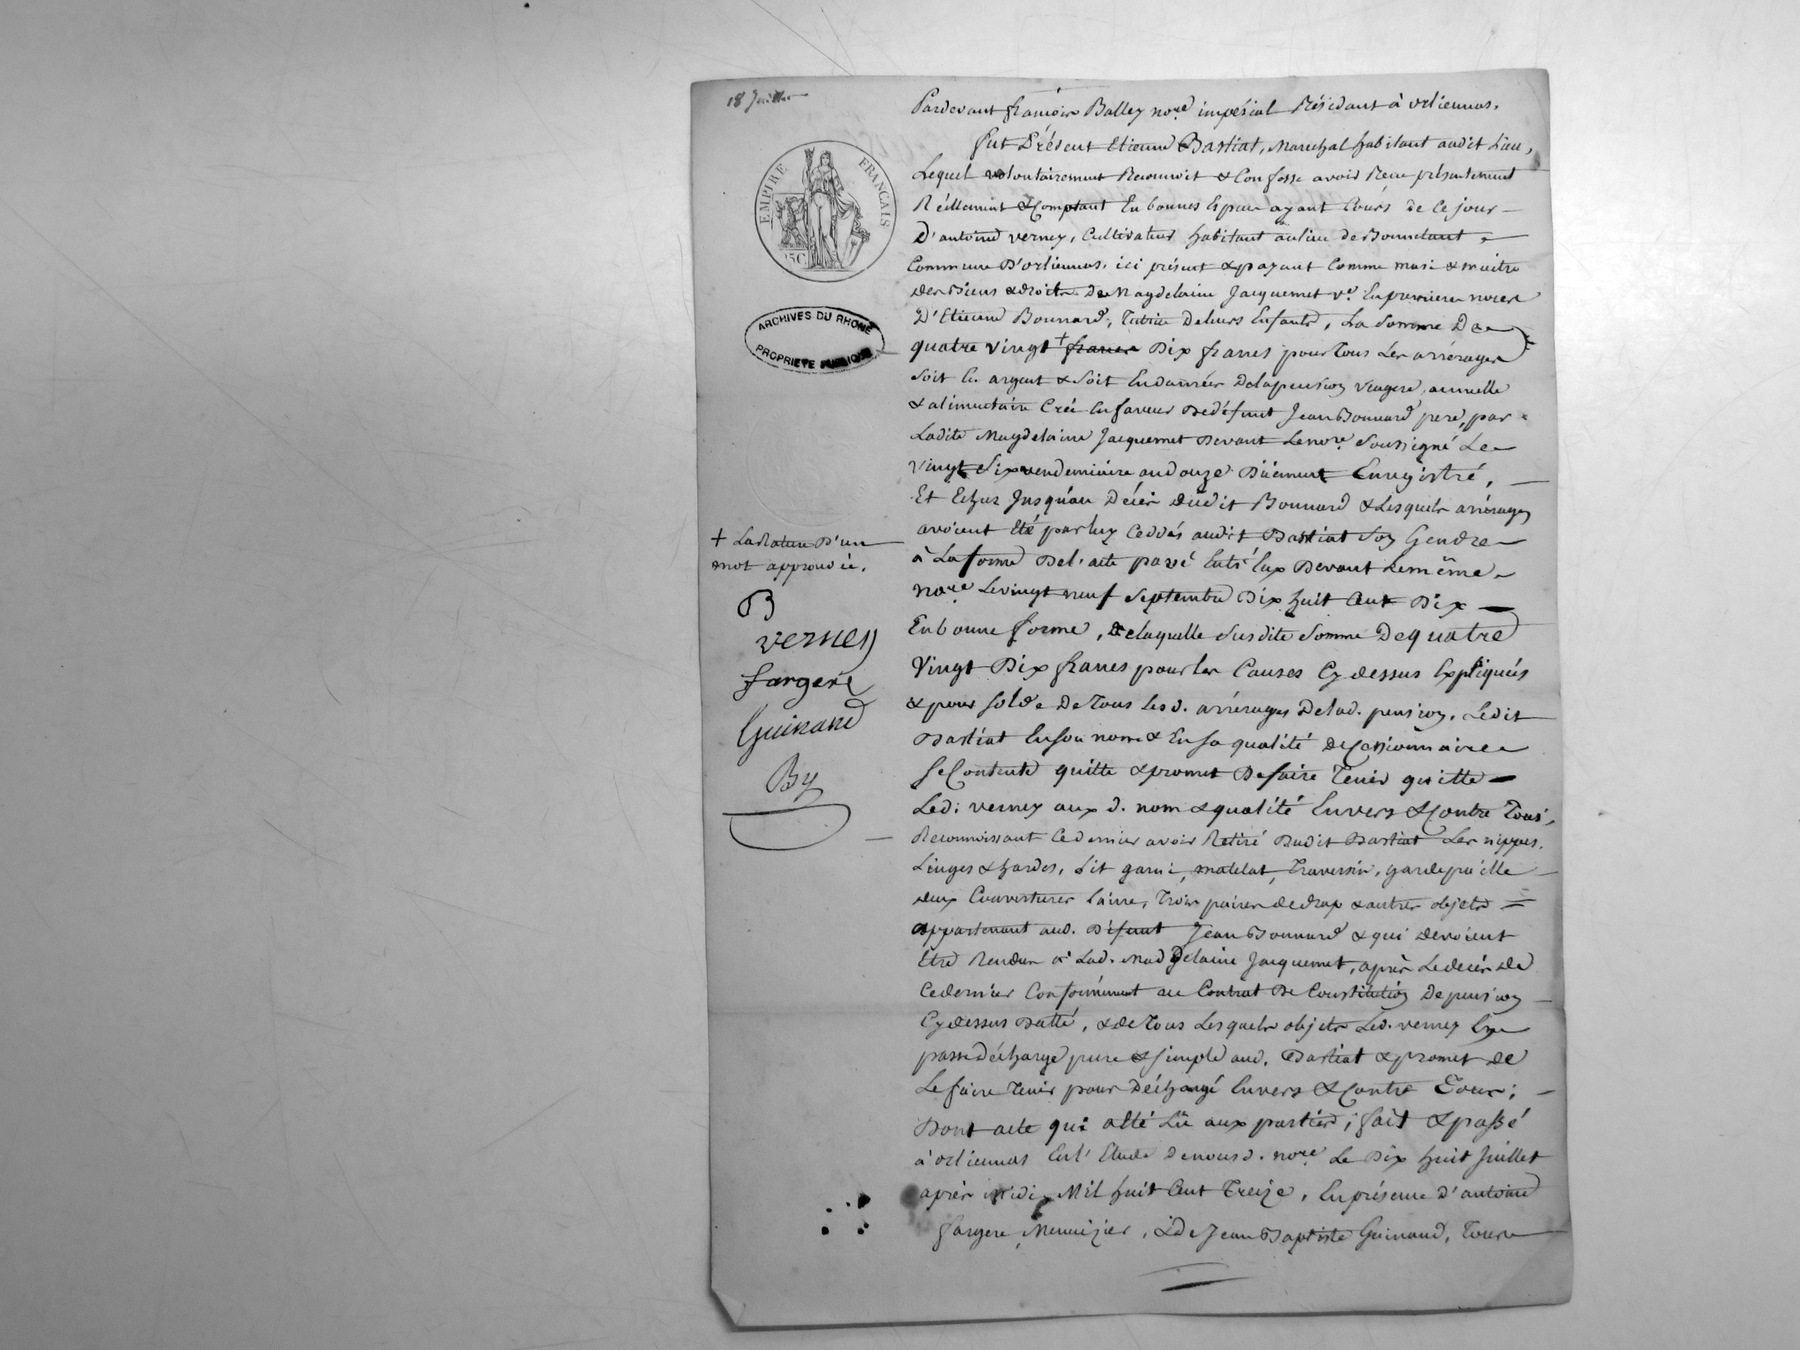 18 Juillet
Pardevant françois Balley nore. impérial Résidant à orliennas.
fut Présent Etienne Bastiat, Marechal habitant audit Lieu,
Lequel volontairement Reconnoit & Confesse avoir Recu présentement
Réellement & Comptant En bonnes Espèces ayant Cours de Ce jour
D'antoine verney, Cultivateur habitant au lieu de Bonnelant
Commune D'orliennas, ici présent & payant Comme mari & maitre
des Biens & droits De Magdelaine Jacquemet ve. En premieres noces
D'Etienne Bonnard, Tutrice De leurs Enfants, La Somme De
quatre vingt + francs Dix francs pour Tous Les arrérages
Soit En argent & Soit En denrées De la pension viagere, annuelle
& alimentaire Créé En faveur De défunt Jean Bonnard pere, par
Ladite Magdelaine Jacquemet Devant Le nore. Soussigné Le
vingt Six vendemiaire an douze Dûement Enregistré,
Et Echus Jusqu'au Décès dudit Bonnard & Lesquels arrérages
avoient Eté par luy Ceddés audit Bastiat Son Gendre
à La forme De l'acte passé Entr'Eux Devant Le même
nore. Le vingt neuf Septembre Dix huit Cent Dix
En bonne forme, De laquelle Susdite Somme De quatre
Vingt Dix francs pour les Causes Cy dessus Expliqués
& pour Solde De Tous Les d. arrérages De lad. pension, Ledit
Bastiat En Son nom & En Sa qualité de Cessionnaire
Se Contente quitte & promet De faire Tenir quitte
Led. verney aux d. nom & qualité Envers & Contre Tous,
Reconnoissant Ce dernier avoir Retiré Dudit Bastiat Les nippes,
Linges & hardes, Lit garni, matelat, Traversin, garde paille
deux Couvertures laine, Trois paires de drap & autres objets
appartenant aud. Défunt Jean Bonnard & qui devoient
Etre Rendus à Lad. Magdelaine Jacquemet, après Le décès de
Ce dernier Conformément au Contrat De Constitution De pension
Cy dessus Datté, & de Tous Lesquels objets Led. verney En
passe décharge pure & Simple aud. Bastiat & promet de
Le faire Tenir pour Déchargé Envers & Contre Tous;
Dont acte qui a Eté Lû aux parties; fait & passé
à orliennas En l'Etude De nous d. nore. Le Dix huit Juillet
après midi Mil huit Cent Treize, En présence d'antoine
fargere Menuizier, & de Jean Baptiste Guinand, Tous
EMPIRE FRANÇAIS
25C
ARCHIVES DU RHONE
PROPRIETE PUBLIQUE
+ La Rature D'un
mot approuvée.
B
verney
fargere
Guinand
By